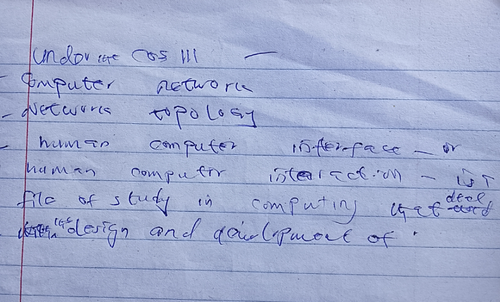 under the COS 111 —
- Computer network
- Network topology
- human computer interface - or
human computer interaction - is a
file of study in computing that deal
design and development of